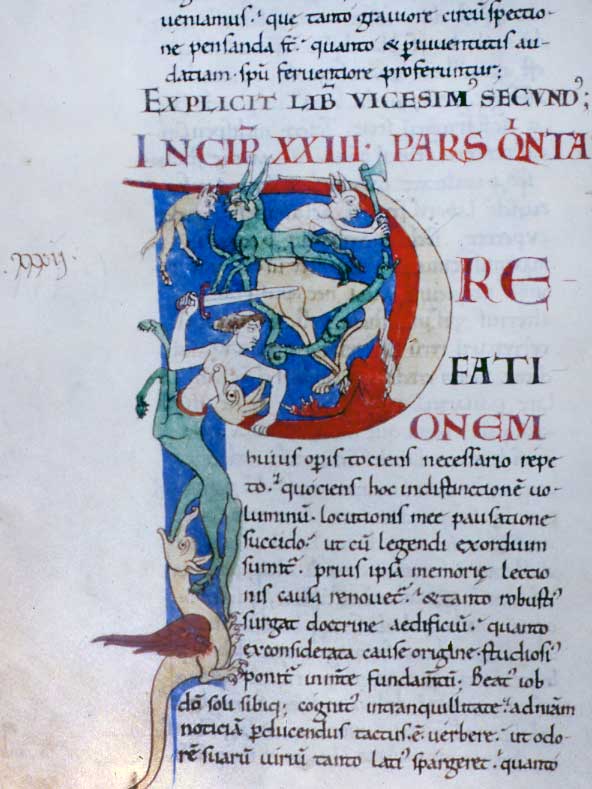 ueniamus. que tanto grauiore circūspectio-
ne pensanda st̄. quanto & p̄ iuuentutis au-
datiam. spū feruentiore proferuntur;
EXPLICIT LIB̄ VICESIMꝰ SECVNDꝰ;
INCIP̄ XXIII. PARS QͥNTA
P RE-
FATI
ONEM
.xxxij.
huius opis tociens necessario repe
to. quociens hoc indistinctionē uo-
luminū. locutionis mee pausatione
succido. ut cū legendi exordium
sumit᷑. prius ipsa memorię lectio
nis causa renouet᷑. & tanto robustiꝰ
surgat doctrine aedificiū. quanto
exconsiderata cause origine. studiosiꝰ
ponit᷑ inm̄te fundam̄tū. Beatꝰ iob
dō soli sibiq; cognitꝰ intranquillitate. adnr̄am
noticiā pducendus tactus. ē. uerbere. ut odo-
rē suarū uiriū tanto latiꝰ spargeret. quanto